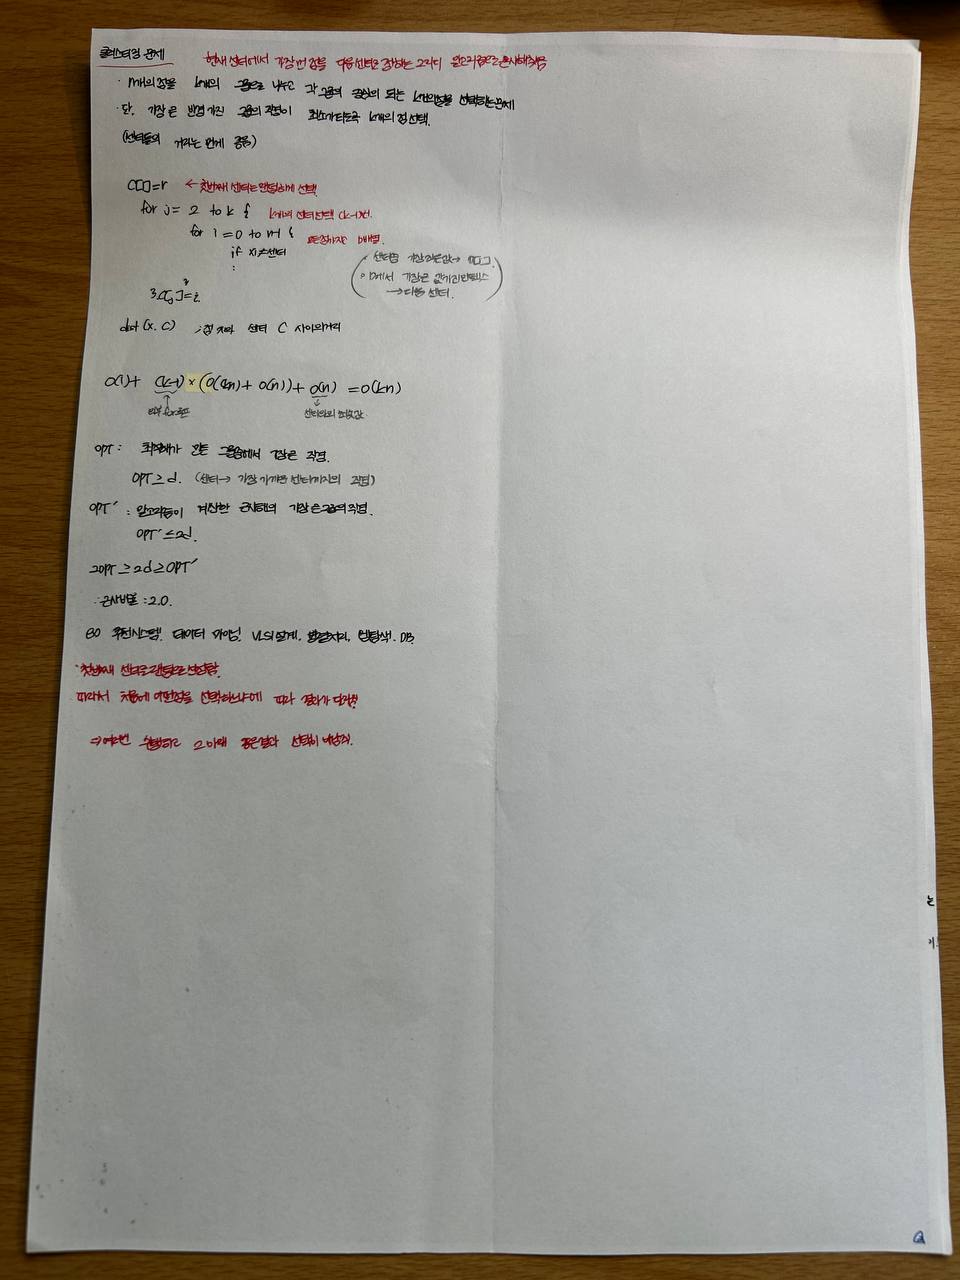 클러스터링 문제
현재 센터에서 가장 먼 점을 다음센터로 정하는 그리디 알고리즘으로 근사해찾음
· n개의 점을 k개의 그룹으로 나누고 각 그룹의 중심이 되는 k개의 점을 선택하는 문제
· 단, 가장 큰 반경 가진 그룹의 직경이 최소가 되도록 k개의 점 선택.
(센터들의 거리는 멀게 공용)
C[1]=r ← 첫번째 센터는 랜덤하게 선택
for j= 2 to k { k개의 센터 선택 (k-1)번.
for i=0 to n-1 { 배열.
if xi≠센터
:
센터별 가장 값 → D[i].
◦ D에서 가장 큰 값 가진 인덱스
→ 다음 센터.
}
} C[j]=i.
dist (x, C) ; 점 x와 센터 C 사이의 거리
O(1)+ (k-1) × (O(kn)+ O(n))+ O(n) =O(kn)
외부 for루프
센터와의
OPT : 최적해가 만든 그룹중에서 가장 큰 직경.
OPT ≥ d. (센터→ 가장 가까운 센터까지의 직경)
OPT' : 알고리즘이 계산한 근사해의 가장 큰 그룹의 직경.
OPT' ≤ 2d.
2OPT ≥ 2d ≥ OPT'
∴ 근사비율 : 2.0.
추천시스템, 데이터 마이닝, VLSI 설계, 병렬처리, 웹탐색, DB
· 첫번째 센터를 랜덤으로 선택함.
따라서 처음에 어떤점을 선택하느냐에 따라 결과가 달라짐
⇒ 여러번 수행하고 그 아래 좋은결과 선택이
는